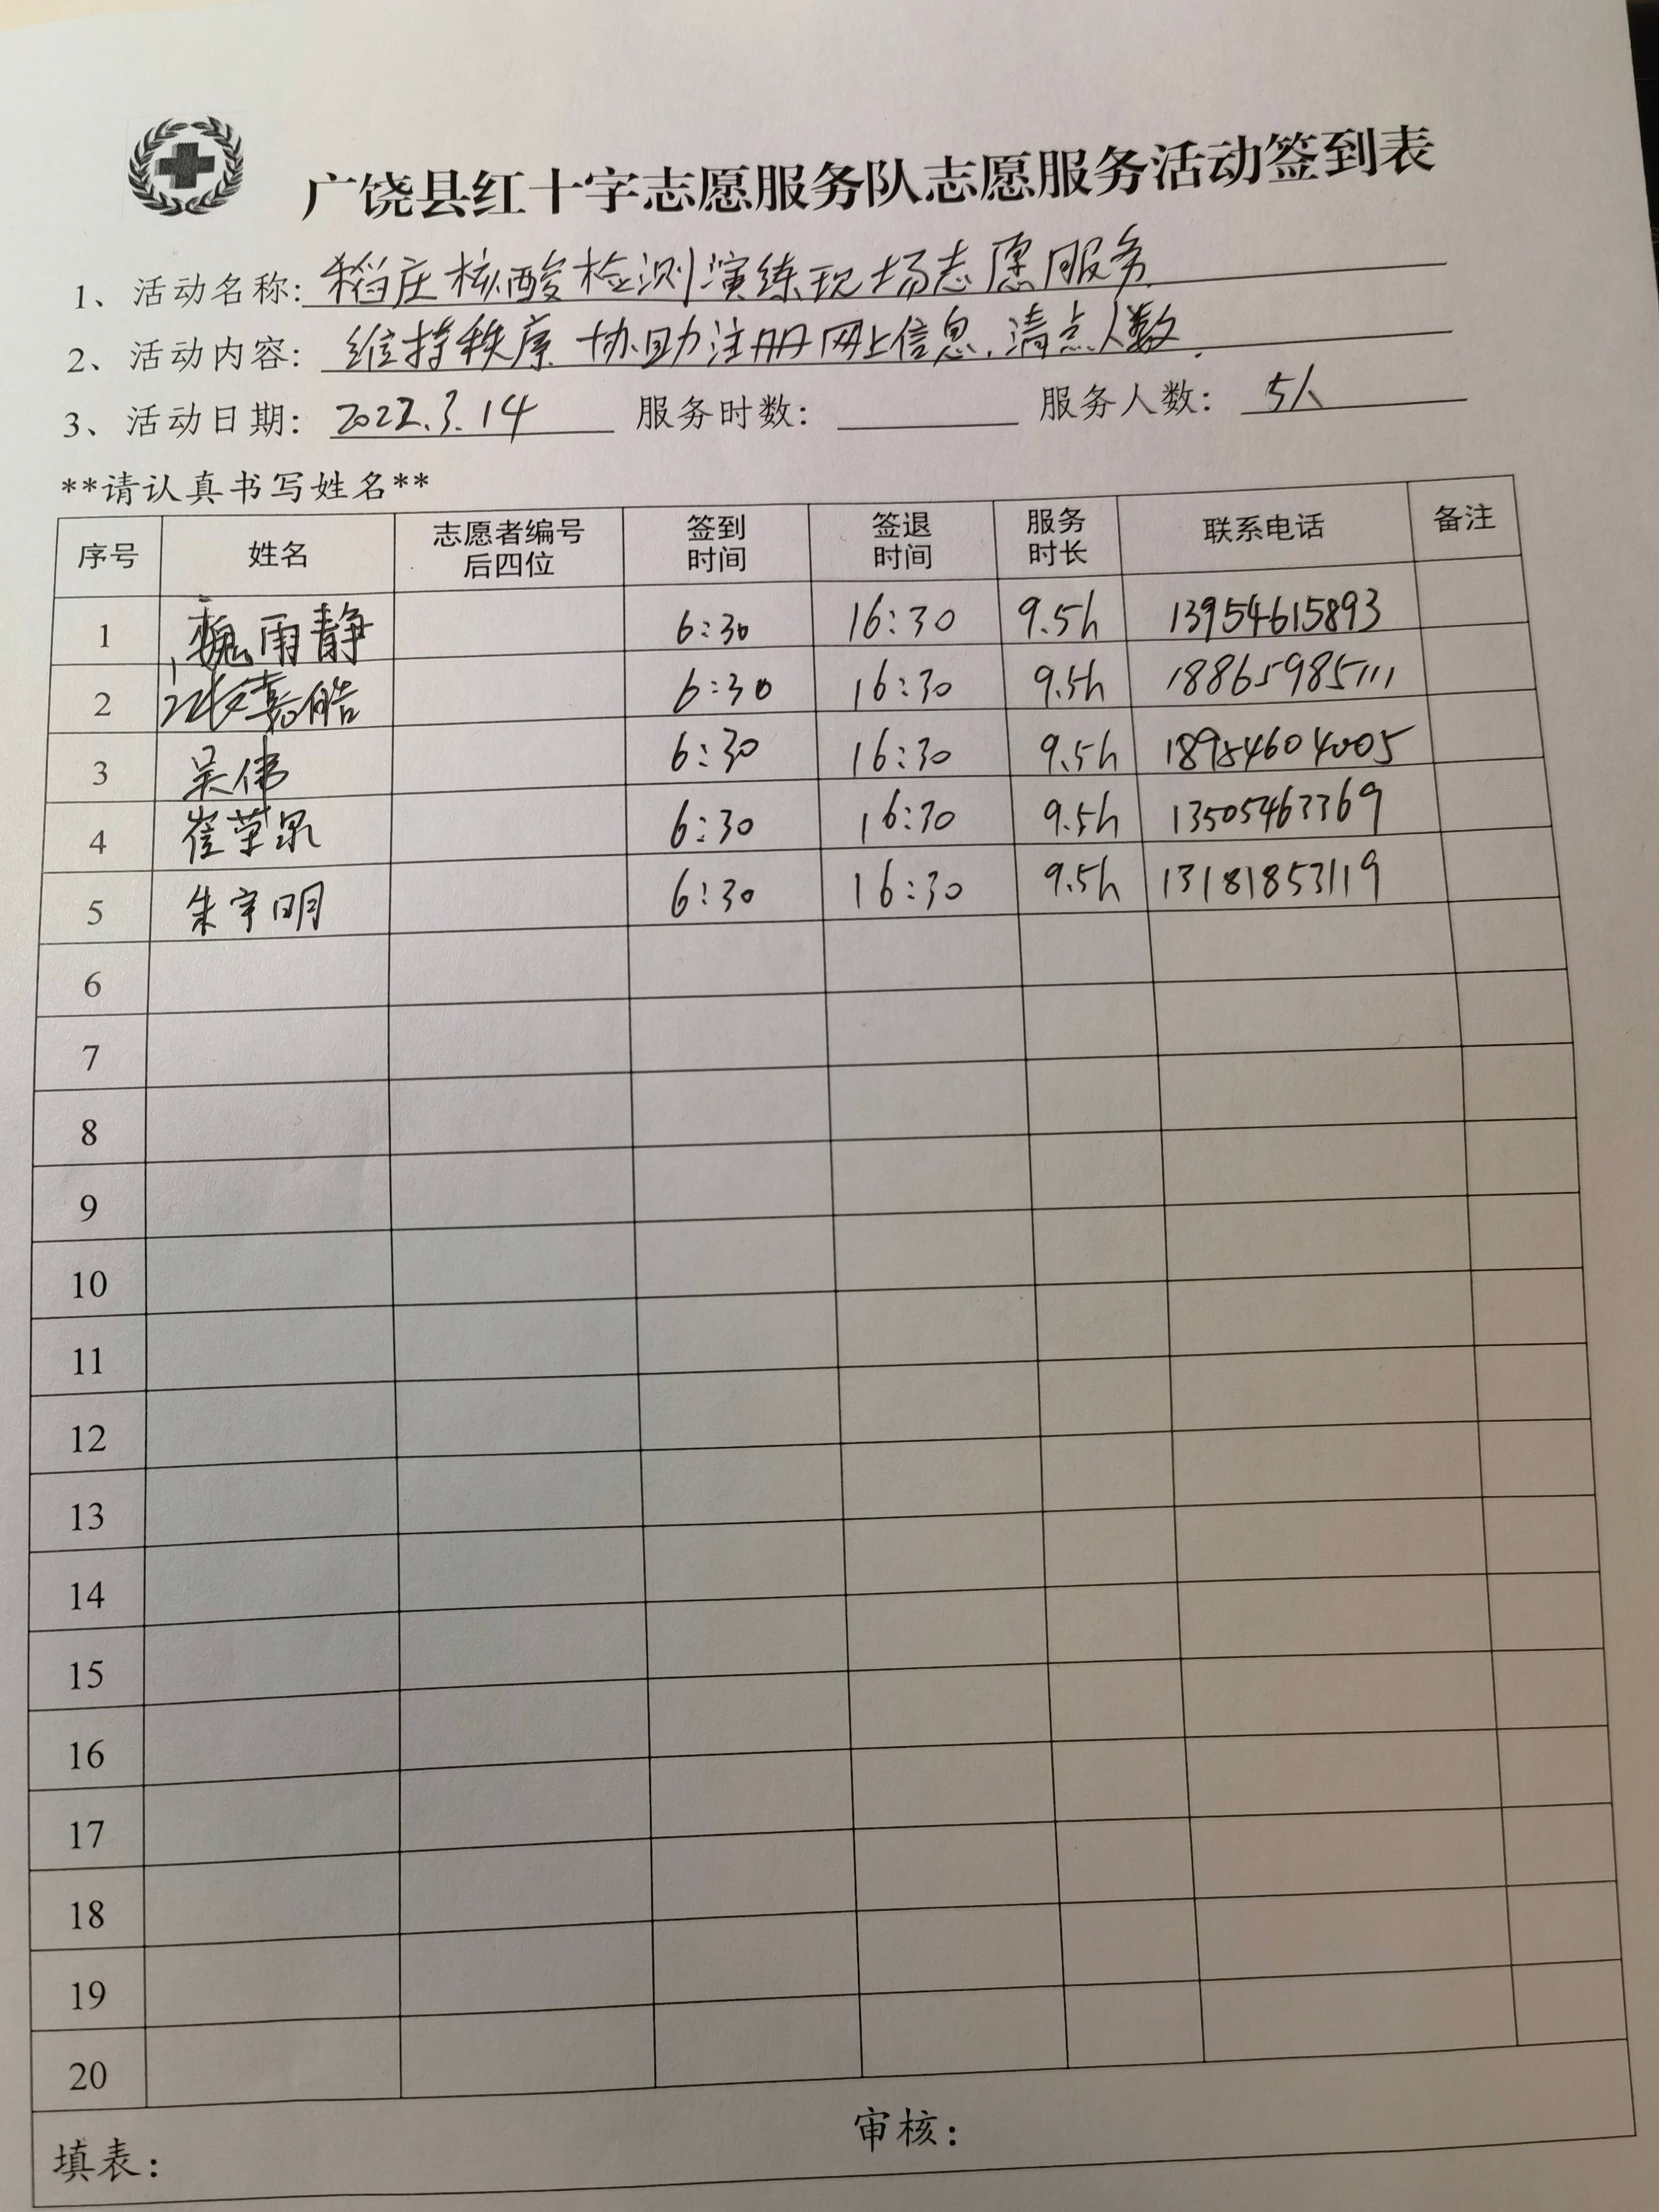 广饶县红十字志愿服务队志愿服务活动签到表
1、活动名称: 稻庄核酸检测演练现场志愿服务
2、活动内容: 维持秩序 协助注册网上信息.清点人数.
3、活动日期: 2022.3.14 服务时数: 服务人数: 5人
**请认真书写姓名**
序号 姓名 志愿者编号后四位 签到时间 签退时间 服务时长 联系电话 备注
1 魏雨静 6:30 16:30 9.5h 13954615893
2 张嘉皓 6:30 16:30 9.5h 18865985111
3 吴伟 6:30 16:30 9.5h 18954604005
4 崔荣泉 6:30 16:30 9.5h 13505463369
5 朱宇明 6:30 16:30 9.5h 13181853119
6
7
8
9
10
11
12
13
14
15
16
17
18
19
20
填表: 审核: